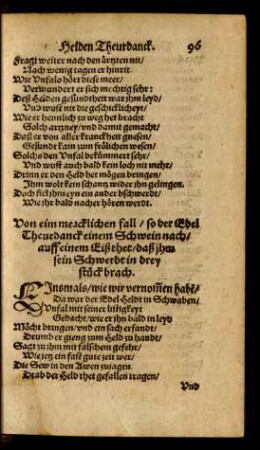 Helden Theurdanck. 96
Fragt weiter nach den ärtzten nit/
Nach wenig tagen er hinrit.
Wie Vnfalo hört diese meer/
Verwundert er sich mechtig sehr:
Deß Helden gesundtheit war jhm leyd/
Vnd wust nit die geschicklicheyt/
Wie er heimlich zu weg het bracht
Solch artzney/ vnd damit gemacht/
Daß er von aller kranckheit gnesen/
Gesundt kam zum frölichen wesen/
Solchs den Vnfal bekümmert sehr/
Vnd wust auch bald kein loch nit mehr/
Drinn er den Held het mögen bringen/
Jhm wolt kein schantz wider jhn gelingen.
Doch fiel jhm eyn ein ander bschwerdt/
Wie jhr bald nacher hören werdt.
Von ein mercklichen fall / so der Edel
Theurdanck einem Schwein nach/
auff einem Eiß thet/ daß jhm
sein Schwerdt in drey
stück brach.
EInomals/ wie wir vernommen habē/
Da war der Edel Heldt in Schwaben/
Vnfal mit seiner listigkeyt
Gedacht/ wie er jhn bald in leyd
Möcht bringen/ vnd ein sach erfandt/
Drumb er gieng zum Held zu handt/
Sagt zu jhm mit falschem gefehr/
Wie jetz ein fast gute zeit wer/
Die Sew in den Awen zujagen.
Drab der Held thet gefallen tragen/
Vnd